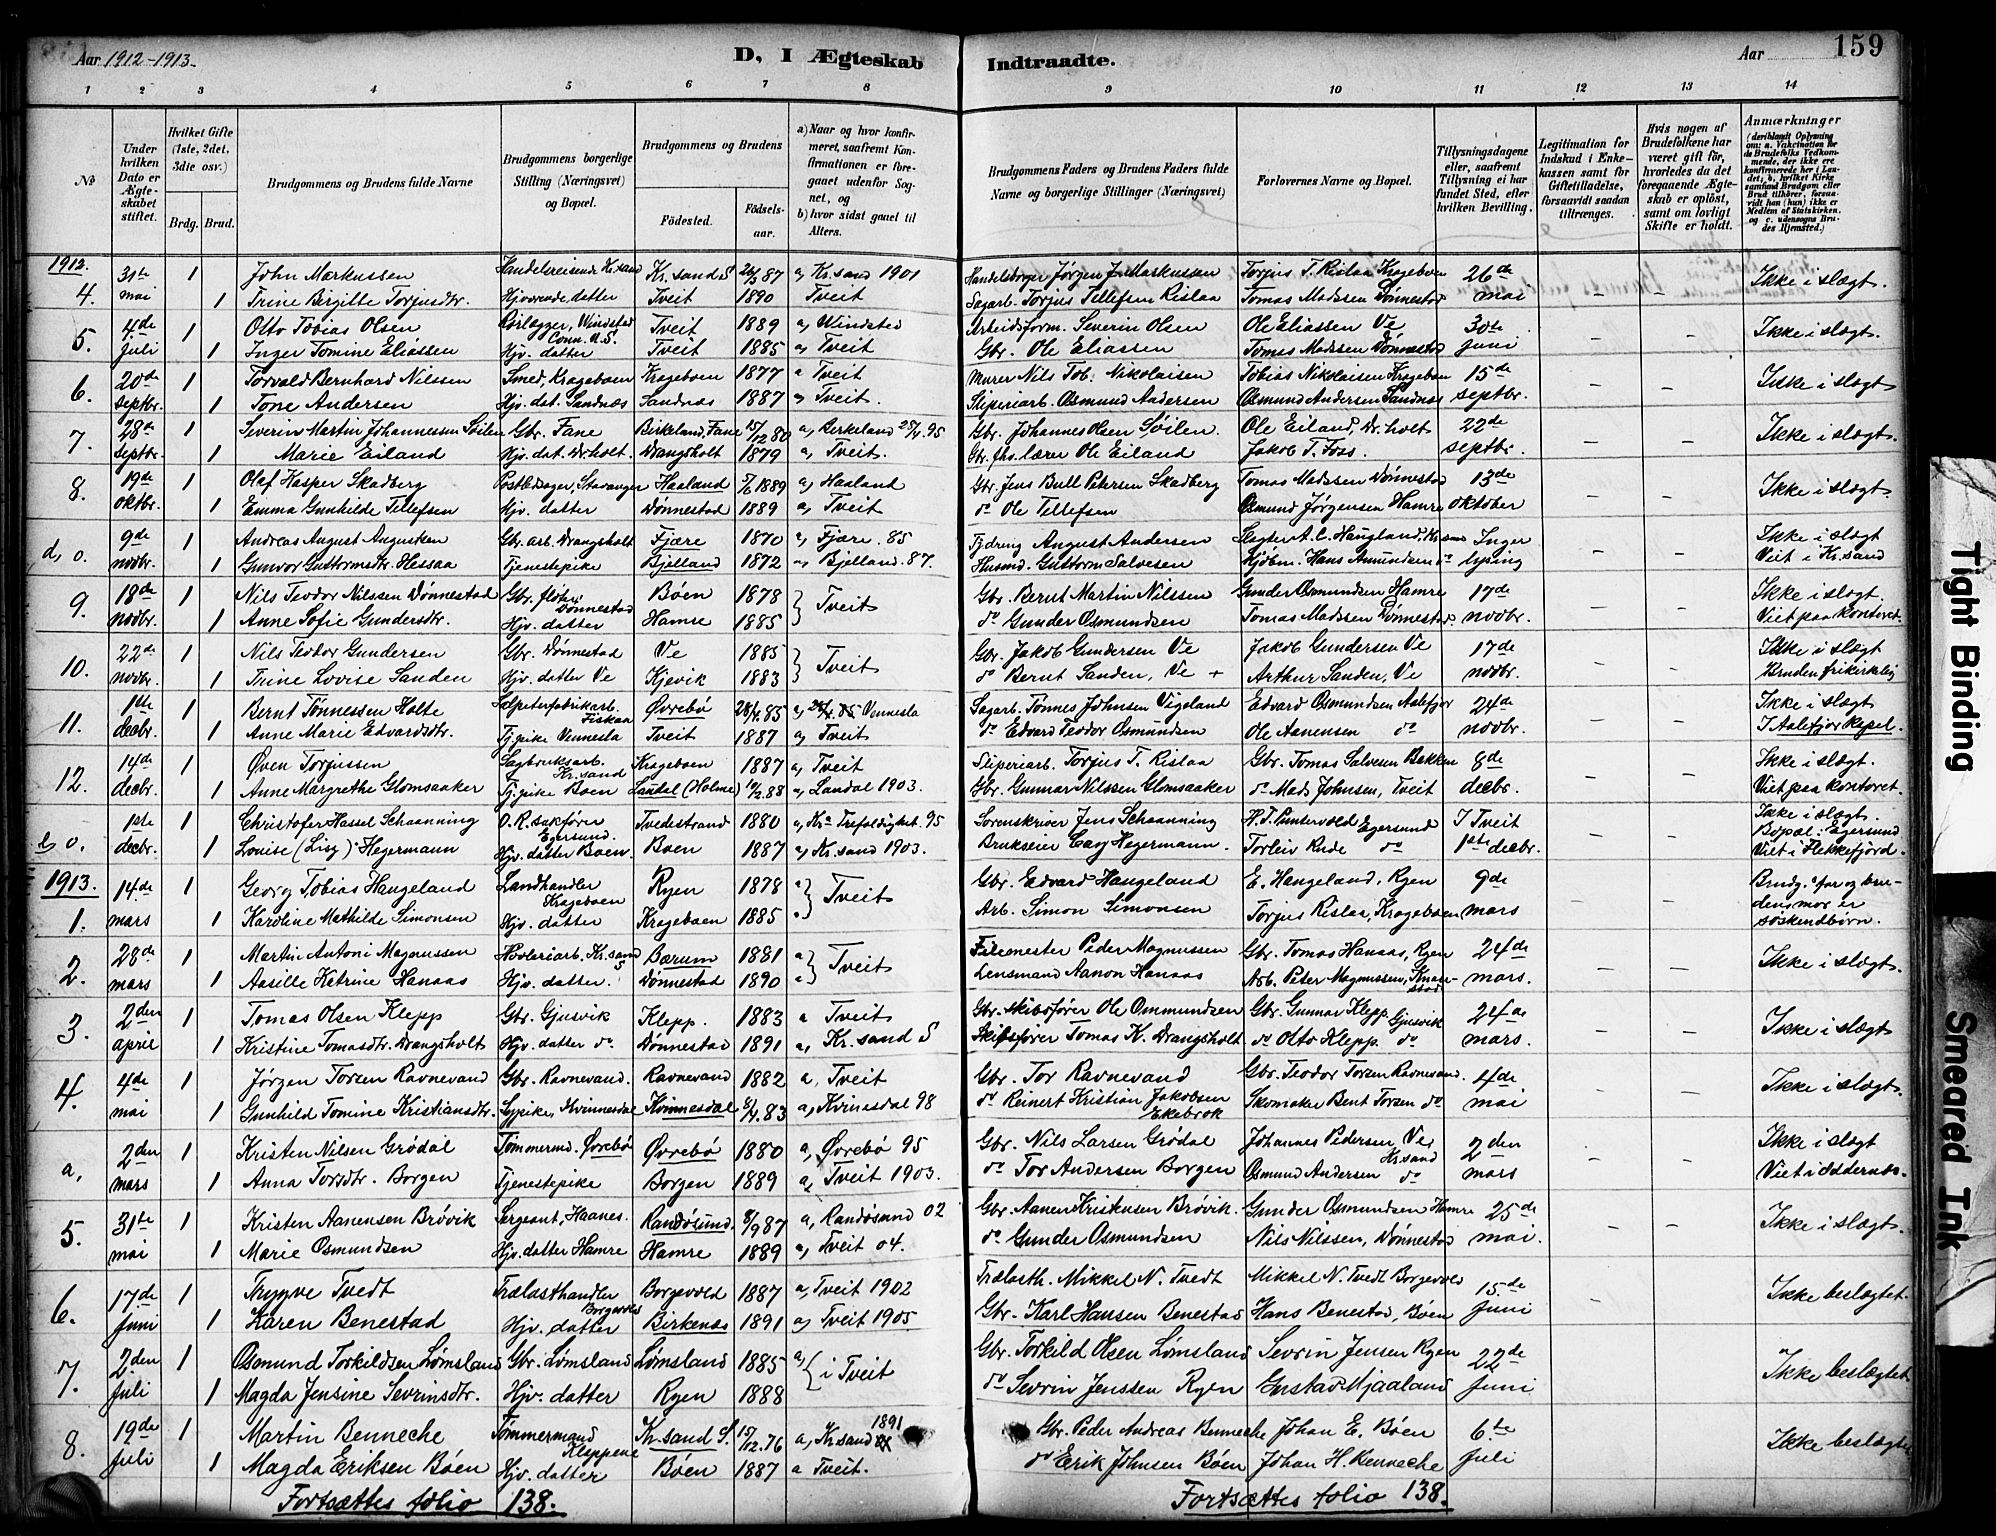 Aar 1912-1913. D, I Ægteskab Indtraadte. Aar 159
1 2 3 4 5 6 7 8 9 10 11 12 13 14
№
Under hvilken Dato er Ægteskabet stiftet.
Hvilket Gifte (1ste, 2det, 3die osv.)
Brdg. Brud.
Brudgommens og Brudens fulde Navne
Brudgommens borgerlige Stilling (Næringsvei) og Bopæl.
Brudgommens og Brudens
Fødested. Fødsels-aar.
a) Naar og hvor konfirmeret, saafremt Konfirmationen er foregaaet udenfor Sognet, og
b) hvor sidst gaaet til Alters.
Brudgommens Faders og Brudens Faders fulde Navne og borgerlige Stillinger (Næringsvei)
Forlovernes Navne og Bopæl.
Tillysningsdagene eller, saafremt Tillysning ei har fundet Sted, efter hvilken Bevilling.
Legitimation for Indskud i Enkekassen samt for Giftetilladelse, forsaavidt saadan tiltrænges.
Hvis nogen af Brudefolkene har været gift før, hvorledes da det foregaaende Ægteskab er opløst, samt om lovligt Skifte er holdt.
Anmærkninger (deriblandt Oplysning om: a. Vakcination for de Brudefolks Vedkommende, der ikke ere konfirmerede her i Landet; b. hvilket Kirkesamfund Brudgom eller Brud tilhører, forsaavidt han (hun) ikke er Medlem af Statskirken, og c. udensogns Brudes Hjemsted.)
1912.
4. 31te mai 1 John Markussen Handelsreisende Kr.sand Kr.sand S 26/3 87 a, Kr.sand 1901 Handelsborger Jørgen J. Markussen Torjus T. Rislaa Krageboen 26de mai - - Ikke i slægt.
1 Trine Birgitte Torjusdtr. Hjværende datter Tveit 1890 Tveit Sagarb. Torjus Tellefsen Rislaa Tomas Madssen Dønnestad
5. 4de Juli 1 Otto Tobias Olsen Rørlægger, Windsted Conn. U.S. Tveit 1889 a, Windsted Arbeidsform. Severin Olsen Ole Eliassen Ve 30te Juni - - Ikke i slægt.
1 Inger Tomine Eliassen Hjv. datter Tveit 1885 a, Tveit Gbr. Ole Eliassen Tomas Madssen Dønnestad
6. 20de septbr. 1 Torvald Bernhard Nilssen Smed, Krageboen Krageboen 1877 a Tveit Murer Nils Tob. Nikolaisen Tobias Nikolaisen Krageboen 15de septbr. - - Ikke i slægt
1 Tone Andersen Hjv. dat. Sandnæs Sandnæs 1887 a, Tveit. Sliperiarb. Osmund Andersen Osmund Andersen Sandnæs
7. 28de septbr. 1 Severin Martin Johannessen Søilen Gbr. Fane Birkeland, Fane 15/12 80 a, Birkeland 25/4 95 Gbr. Johannes Olsen Søilen. Ole Eiland, Dr.holt 22de septbr. - - Ikke i slægt.
1 Marie Eiland Hjv. dat. Dr.holt. Drangsholt 1879 a, Tveit. Gbr. fhv. lærer Ole Eiland Jakob T. Foss.
8. 19de oktbr. 1 Olaf Kasper Skadberg Postbdrager, Stavanger Haaland 5/6 1889 a, Haaland Gbr. Jens Bull Petersen Skadberg Tomas Madssen Dønnestad 13de oktober - - Ikke i slægt
1 Emma Gunhilde Tellefsen Hjv. datter Dønnestad 1889 a, Tveit do Ole Tellefsen Osmund Jørgensen Hamre
d, o. 9de novbr. 1 Andreas August Augustsen Gbr. arb. Drangsholt Fjære 1870 a, Fjære. 85 Tjdreng August Andersen Slagter A. C. Haugland, Kr.sand Inger lysing - - Ikke i slægt Viet i Kr.sand
1 Gunvor Guttormsdtr. Hessaa Tjenestepike Bjelland 1872 a, Bjelland. 87. Husmd. Guttorm Salvesen Kjøbm. Hans Amundsen do
9. 18de novbr. 1 Nils Teodor Nilssen Dønnestad Gbr. fløter Dønnestad Bøen 1878 Tveit Gbr. Bernt Martin Nilssen Gunder Osmundsen Hamre 17de novbr. - - Ikke i slægt. Viet paa kontoret.
1 Anne Sofie Gundersdtr. Hjv. datter Hamre 1885 do Gunder Osmundsen Tomas Madssen Dønnestad.
10. 22de novbr. 1 Nils Teodor Gundersen Gbr. Dønnestad Ve 1885 Tveit Gbr. Jakob Gundersen Ve Jakob Gundersen Ve 17de novbr. - - Ikke i slægt Bruden frikirkelig
1 Trine Lovise Sanden Hjv. datter Ve Kjevik 1883 do Bernt Sanden, Ve + Arthur Sanden, Ve
11. 1ste decbr. 1 Bernt Tønnessen Holte Salpeterfabrikarb. Fiskaa Øvrebø 28/4. 85 Vennesla Sagarb. Tønnes Johnsen Vigeland Edvard Osmundsen Aalefjær 24de novbr. - - Ikke i slægt I Aalefjær kapel.
1 Anne Marie Edvardsdtr. Tj.pike Vennesla Tveit 1887 a, Tveit do Edvard Teodor Osmundsen Ole Aanensen do
12. 14de decbr. 1 Øven Torjussen Sagbruksarb. Kr.sand Krageboen 1887 a, Tveit Sliperiarb. Torjus T. Rislaa Gbr. Tomas Salvesen Bakken 8de decbr. - - Ikke i slægt. Viet paa kontoret.
1 Anne Margrethe Glomsaaker Tj.pike Boen Landal (Holme) 10/2 88 a, Landal 1903. Gbr. Gunnar Nilssen Glomsaaker do Mads Johnsen, Tveit
b, o. 1ste decbr. 1 Christofer Hassel Schaanning O. R. sakfører Egersund. Tvedestrand 1880 a, Kra Trefoldighet. 95 Sorenskriver Jens Schaanning H. T. Puntervold Egersund I Tveit 1ste decbr. - - Ikke i slægt. Bopæl: Egersund Viet i Flekkefjord.
1 Louise (Lisz) Hegermann Hjv. datter Boen. Boen 1887 a, Kr.sand 1903. Brukseier Cary Hegermann. Torleiv Rude do
1913.
1. 14de mars 1 Georg Tobias Haugeland Landhandler Krageboen Ryen 1878 a Tveit Gbr. Edvard Haugeland E. Haugeland, Ryen 9de mars - - Brudg.s far og brudens mor er søskendbørn.
1 Karoline Mathilde Simonsen Hjv. datter Krageboen 1885 a Arb. Simon Simonsen Torjus Rislaa, Krageboen
2. 28de mars 1 Martin Antoni Magnussen Høvleriarb. Kr.sand S Bærum 1881 a Tveit Filemester Peder Magnussen Gbr. Tomas Hanaas, Ryen 24de mars. - - Ikke i slægt.
1 Aasille Katrine Hanaas Hjv. datter. Dønnestad 1890 a Lensmand Aanon Hanaas Arb. Peter Magnussen, Knarestad
3. 2den april 1 Tomas Olsen Klepp Gbr. Gjusvik Klepp. 1883 a Tveit Gbr. skibsfører Ole Osmundsen Gbr. Gunnar Klepp Gjusvik 24de mars. - - Ikke i slægt
1 Kristine Tomasdtr. Drangsholt Hjv. datter do. Dønnestad 1891 a, Kr.sand S Skibsfører Tomas K. Drangsholt do Otto Klepp do
4. 4de mai 1 Jørgen Torsen Ravnevand Gbr. Ravnevand. Ravnevand 1882 a, Tveit Gbr. Tor Ravnevand Gbr. Teodor Torsen Ravnevand. 4de mai - - Ikke i slægt.
1 Gunhild Tomine Kristiansdtr. Sypike, Kvinnesdal Kvinnesdal 8/4. 83 a, Kvinesdal 98 do Reinert Kristian Jakobsen Ekebrok Skomaker Bent Torsen do
a, 2den mars 1 Kristen Nilsen Grødal Tømmermd. Øvrebø Øvrebø 1880 a, Øvrebø 95 Gbr. Nils Larsen Grødal Johannes Pedersen, Ve 2den mars Ikke i slægt Viet i Oddernes.
1 Anna Torsdtr. Borgen Tjenestepike Borgen 1889 a, Tveit 1903. do Tor Andersen Borgen Osmund Andersen Kr.sand do
5. 31te mai 1 Kristen Aanensen Brøvik Sergeant, Haanes. Randøsund. 8/9 87 a, Randøsund 02 Gbr. Aanen Kristensen Brøvik. Gunder Osmundsen Hamre 25de mai. - - Ikke i slægt.
1 Marie Osmundsen Hjv. datter Hamre Hamre 1889 a, Tveit 04. do Gunder Osmundsen Nils Nilssen, Dønnestad
6. 17de Juni 1 Trygve Tvedt Trælasthandler Borgevold Borgevold 1887 a, Tveit 1902 Trælasth. Mikkel N. Tvedt Mikkel N. Tvedt Borgevold 15de Juni Ikke beslægtet.
1 Karen Benestad Hjv. datter Birkenæs 1891 a, Tveit 1905 Gbr. Karl Hansen Benestad Hans Benestad, Bøen
7. 2den Juli 1 Osmund Torkildsen Lømsland Gbr. Lømsland Lømsland 1885 a, i Tveit Gbr. Torkild Olsen Lømsland Sevrin Jensen Ryen 22de Juni Ikke beslægtet.
1 Magda Jensine Sevrinsdtr. Hjv. datter Ryen 1888 do Sevrin Jenssen Ryen Gustav Mjaaland
8. 19de Juli 1 Martin Benneche Tømmermand Kleppene Kr.sand S. 15/12. 76 a, Kr.sand 1891 Gbr. Peder Andreas Benneche Johan E. Bøen 6te Juli Ikke beslægtet
1 Magda Eriksen Bøen Hjv. datter Bøen 1887 a Tveit. do Erik Johnsen Bøen Johan H. Benneche
Fortsættes folio 138. Fortsættes folio 138.
Tight Binding
Smeared Ink